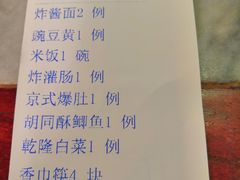 炸酱面2 例
豌豆黄1 例
米饭1 碗
炸灌肠1 例
京式爆肚1 例
胡同酥鲫鱼1 例
乾隆白菜1 例
香巾筷4 块